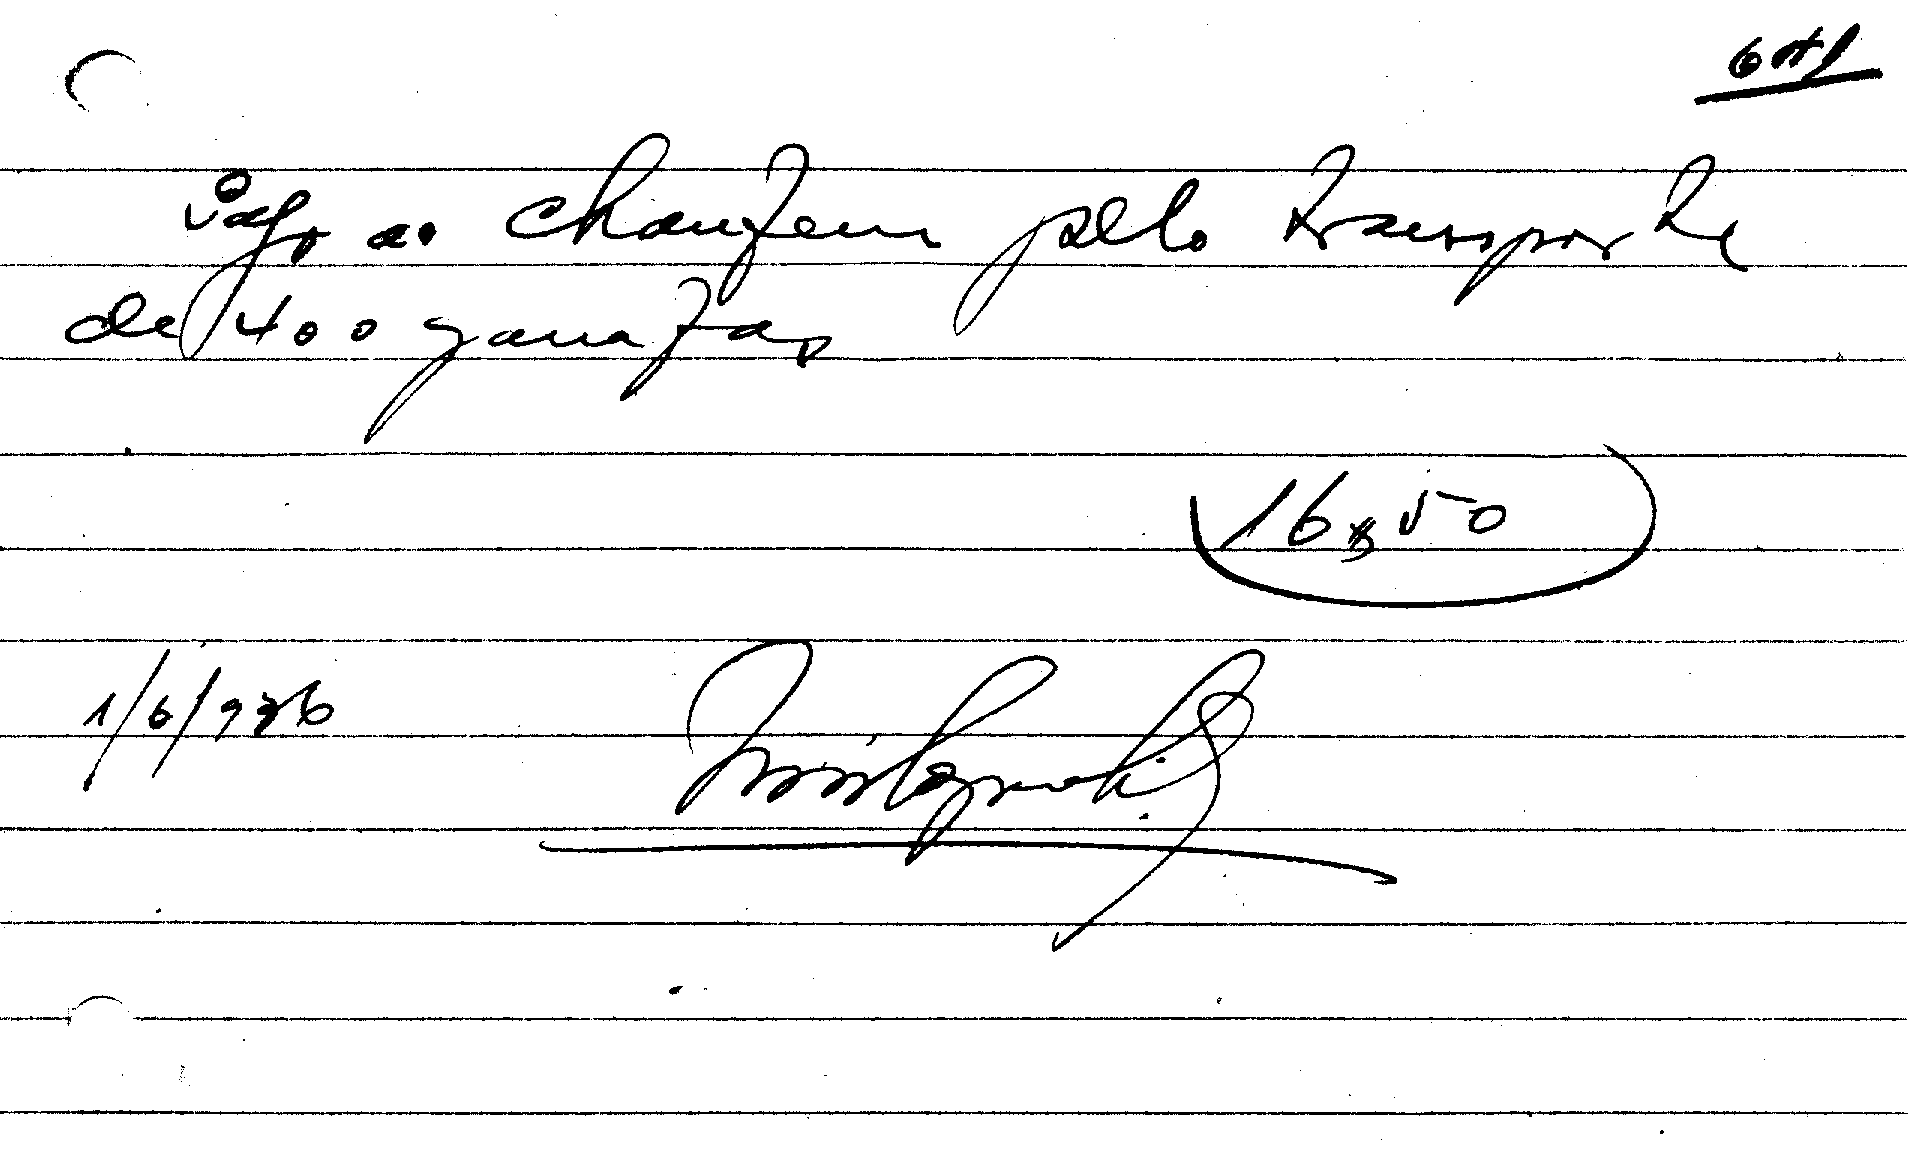 Pago ao chaufeur pelo transporte
de 400 garrafas
16$50
1/6/936